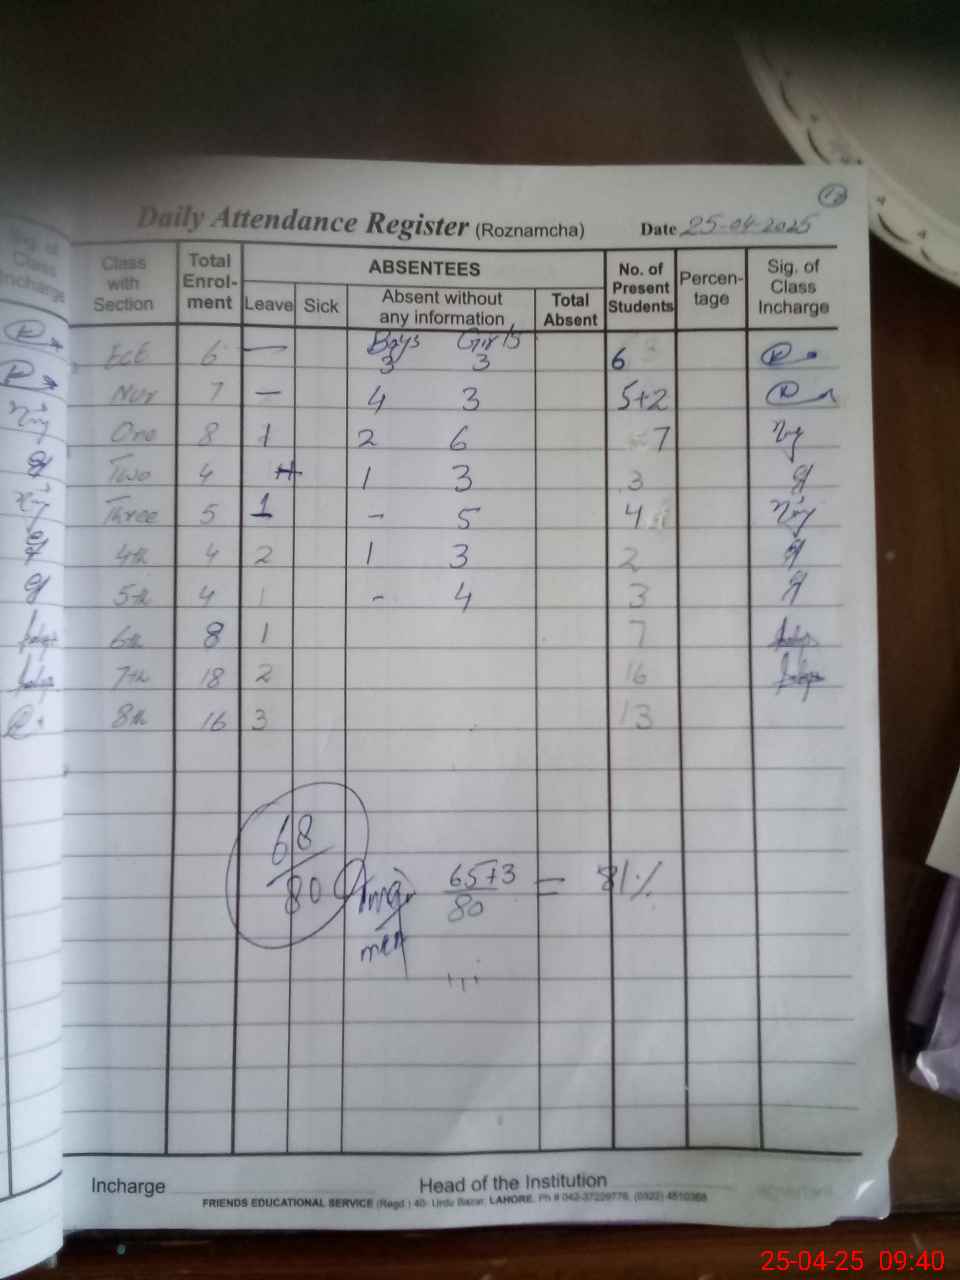 12
Daily Attendance Register (Roznamcha) Date 25-04-2025
Class with Section Total Enrol-ment ABSENTEES No. of Present Students Percen-tage Sig. of Class Incharge
Leave Sick Absent without any information Total Absent
Boys Girls
ECE 6 — 3 3 6
Nur 7 — 4 3 5+2
One 8 1 2 6 7
Two 4 1 3 3
Three 5 1 - 5 4
4th 4 2 1 3 2
5th 4 1 - 4 3
6th 8 1 7
7th 18 2 16
8th 16 3 13
68
80
65+3 = 81%
80
Incharge Head of the Institution
FRIENDS EDUCATIONAL SERVICE (Regd.) 40- Urdu Bazar, LAHORE. Ph # 042-37229776, (0322) 4810368
Sig. of Class Incharge
25-04-25 09:40